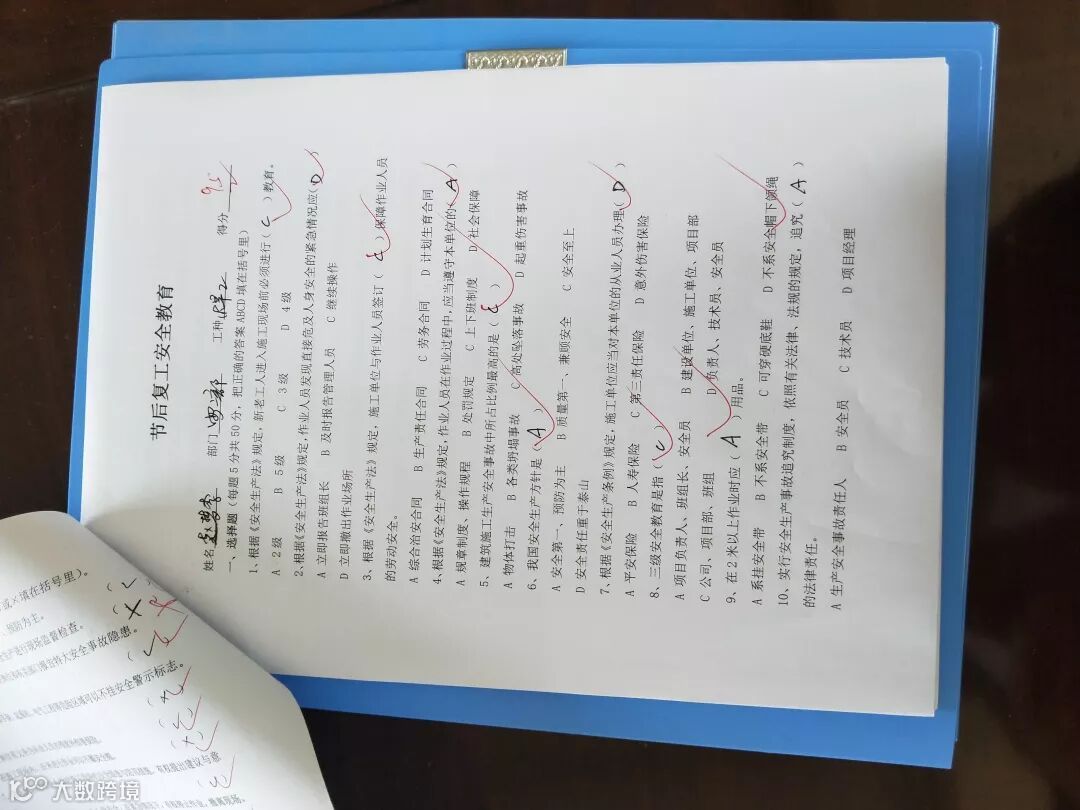 节后复工安全教育
姓名 部门 工种 焊工 得分 95
一、选择题(每题5分共50分,把正确的答案ABCD填在括号里)
1、根据《安全生产法》规定,新老工人进入施工现场前必须进行( C )教育。
A 2级 B 5级 C 3级 D 4级
2、根据《安全生产法》规定,作业人员发现直接危及人身安全的紧急情况应( D )
A 立即报告班组长 B 及时报告管理人员 C 继续操作
D 立即撤出作业场所
3、根据《安全生产法》规定,施工单位与作业人员签订( )保障作业人员
的劳动安全。
A 综合治安合同 B 生产责任合同 C 劳务合同 D 计划生育合同
4、根据《安全生产法》规定,作业人员在作业过程中,应当遵守本单位的( A )
A 规章制度、操作规程 B 处罚规定 C 上下班制度 D 社会保障
5、建筑施工生产安全事故中所占比例最高的是( )
A 物体打击 B 各类坍塌事故 C 高处坠落事故 D 起重伤害事故
6、我国安全生产方针是( A )
A 安全第一、预防为主 B 质量第一、兼顾安全 C 安全至上
D 安全责任重于泰山
7、根据《安全生产条例》规定,施工单位应当对本单位的从业人员办理( D )
A 平安保险 B 人寿保险 C 第三责任保险 D 意外伤害保险
8、三级安全教育是指( C )
A 项目负责人、班组长、安全员 B 建设单位、施工单位、项目部
C 公司、项目部、班组 D 负责人、技术员、安全员
9、在2米以上作业时应( A )用品。
A 系挂安全带 B 不系安全带 C 可穿硬底鞋 D 不系安全帽下颌绳
10、实行安全生产事故追究制度,依照有关法律、法规的规定,追究( A )
的法律责任。
A 生产安全事故责任人 B 安全员 C 技术员 D 项目经理
或×填在括号里)。
预防为主。
进行现场监督检查。
大安全事故隐患。
区域可以不挂安全警示标志。
大数跨境